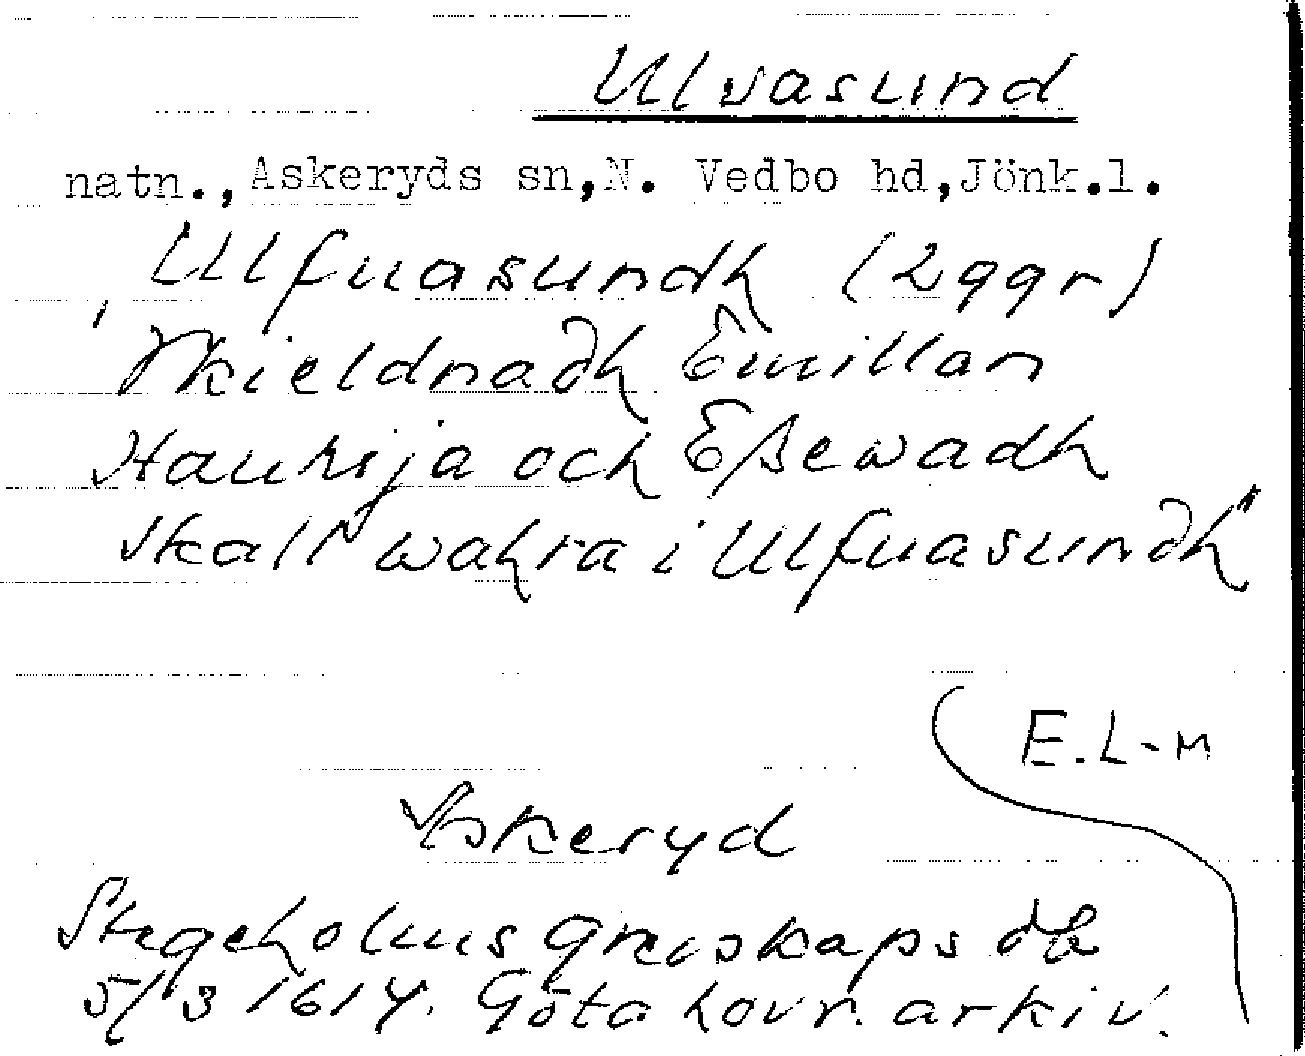 Ulvasund
natn., Askeryds sn, N. Vedbo hd, Jönk.l.
"Ulfuasundh (2 ggr)
Skieldnadh Emillan
Haurija och Eßewadh
skall wahra i Ulfuasundh"
E. L-M
Askeryd
Stegeholms grevskaps db
5/3 1614. Göta hovr. arkiv.